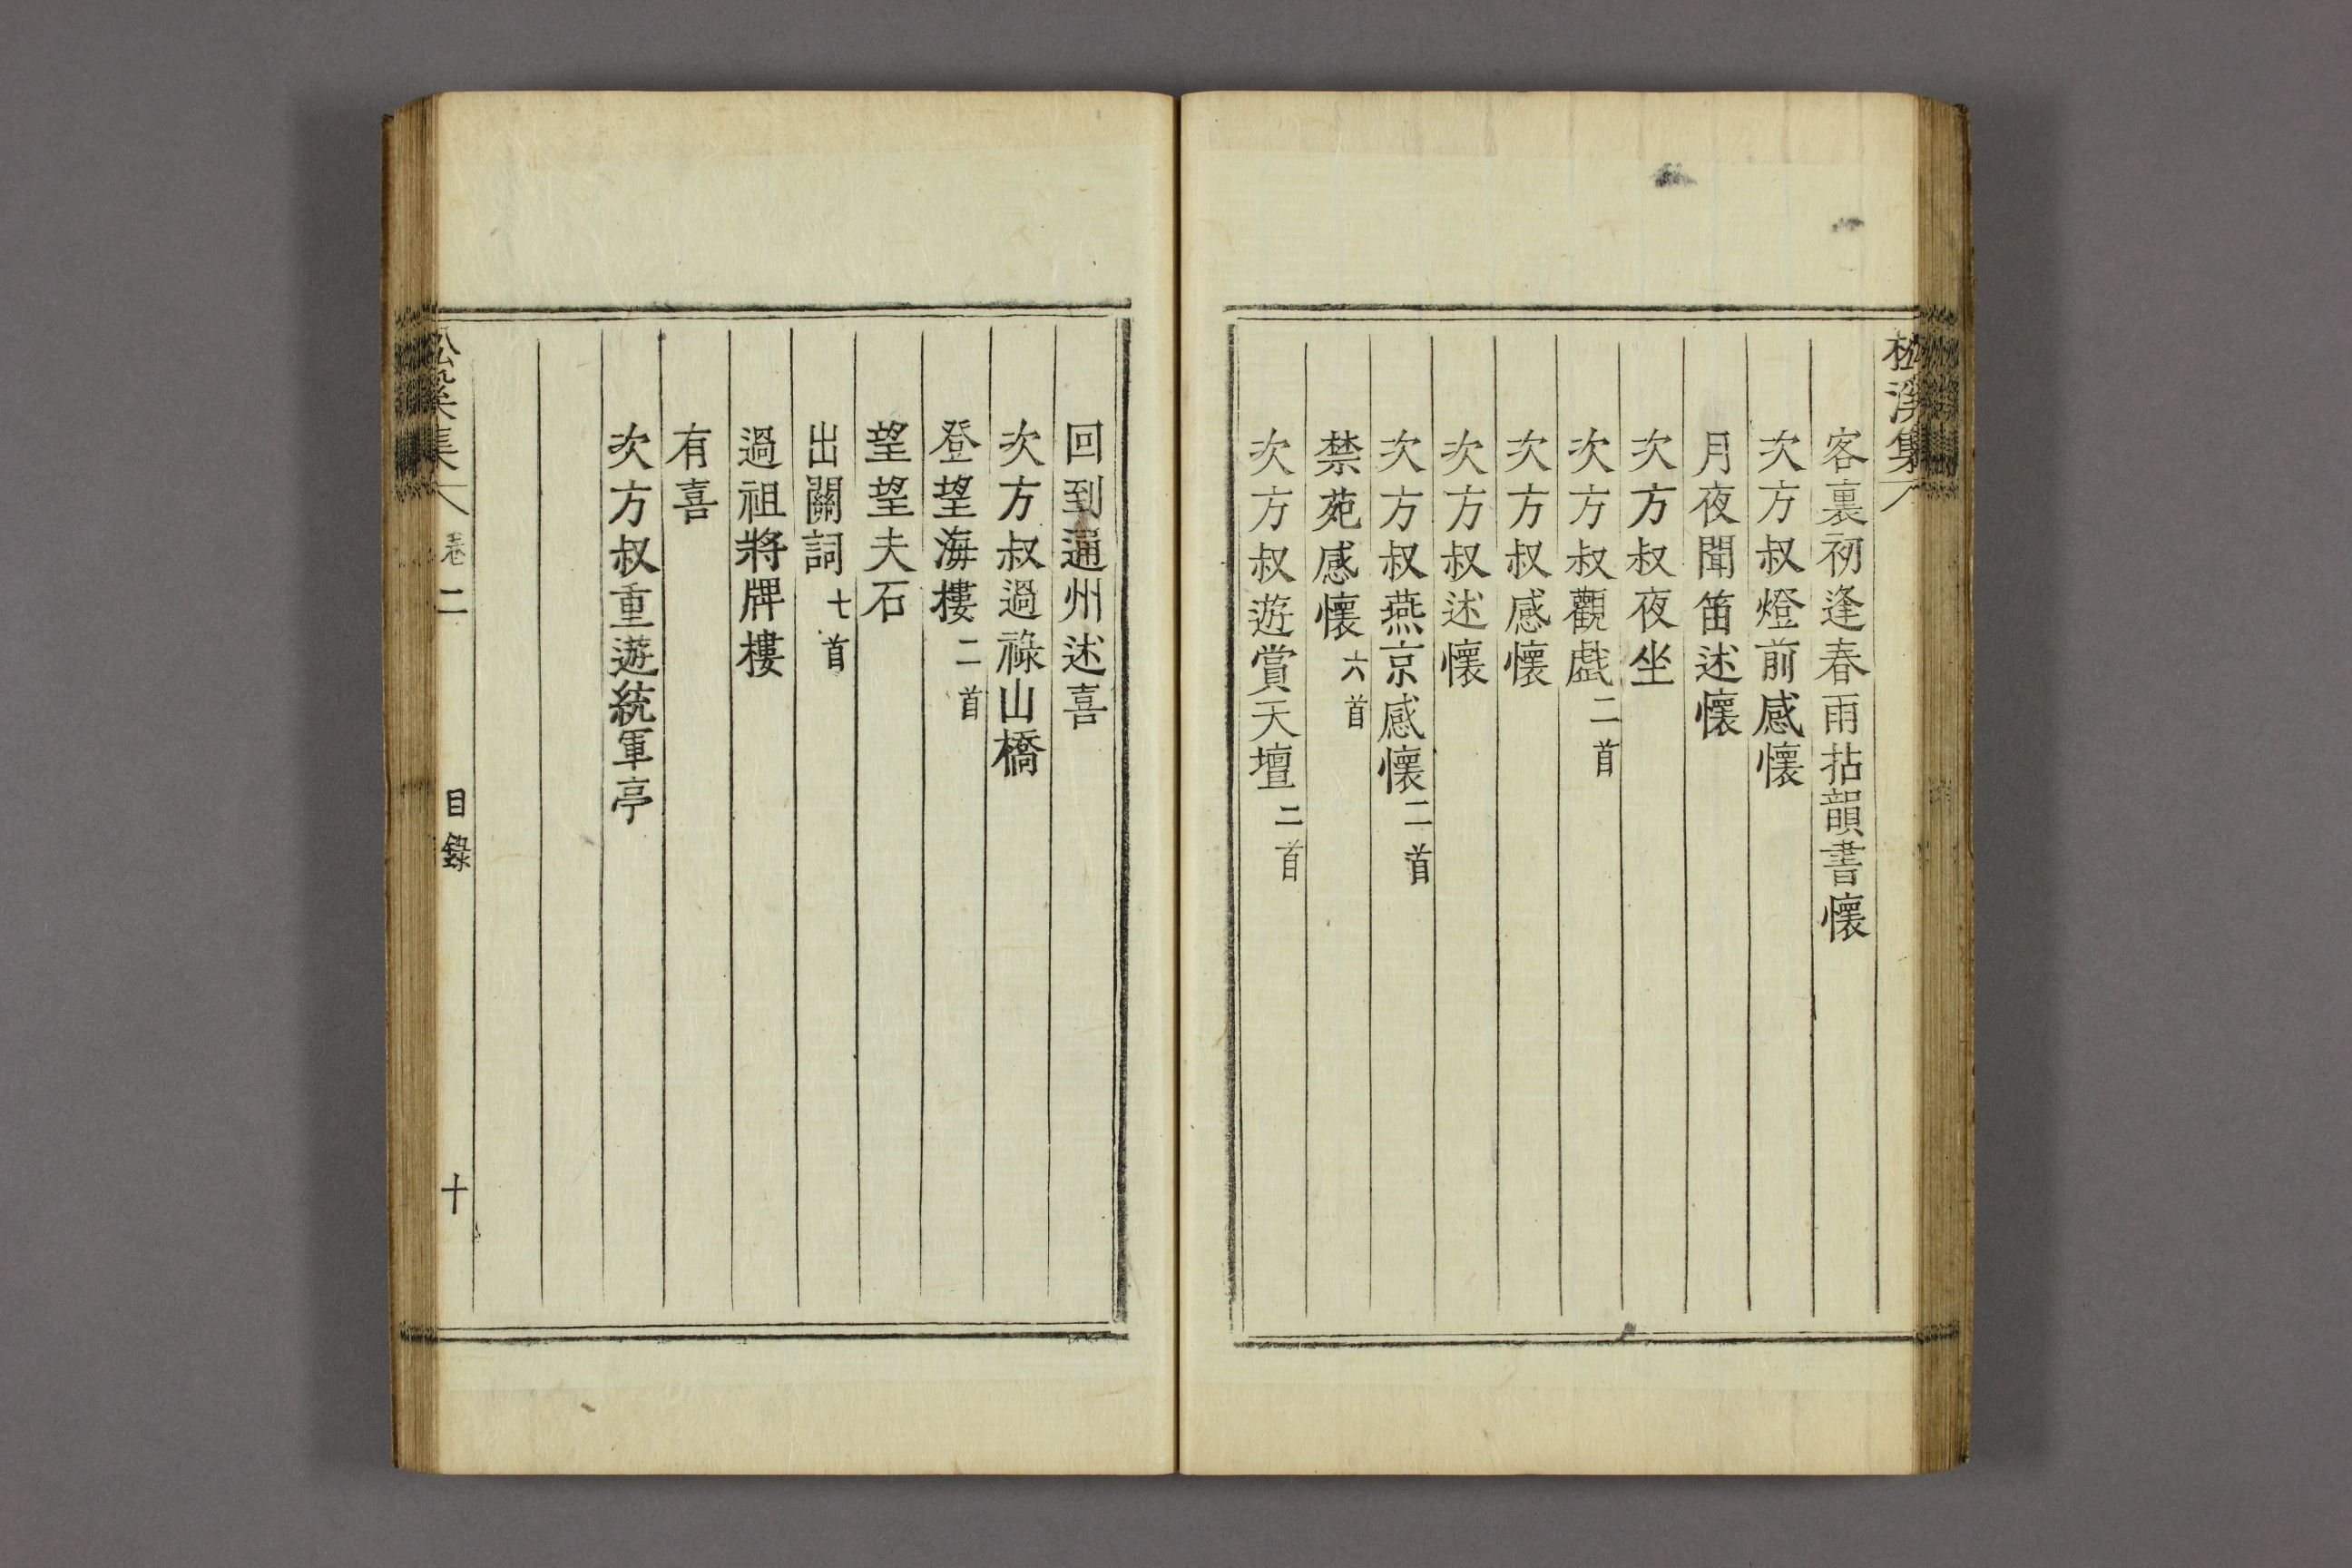 松溪集
客裏初逢春雨拈韻書懷
次方叔燈前感懷
月夜聞笛述懷
次方叔夜坐
次方叔觀戱二首
次方叔感懷
次方叔述懷
次方叔燕京感懷二首
禁苑感懷六首
次方叔遊賞天壇二首
回到通州述喜
次方叔過祿山橋
登望海樓二首
望望夫石
出關詞七首
過祖將牌樓
有喜
次方叔重遊統軍亭
集 卷二 目錄 十